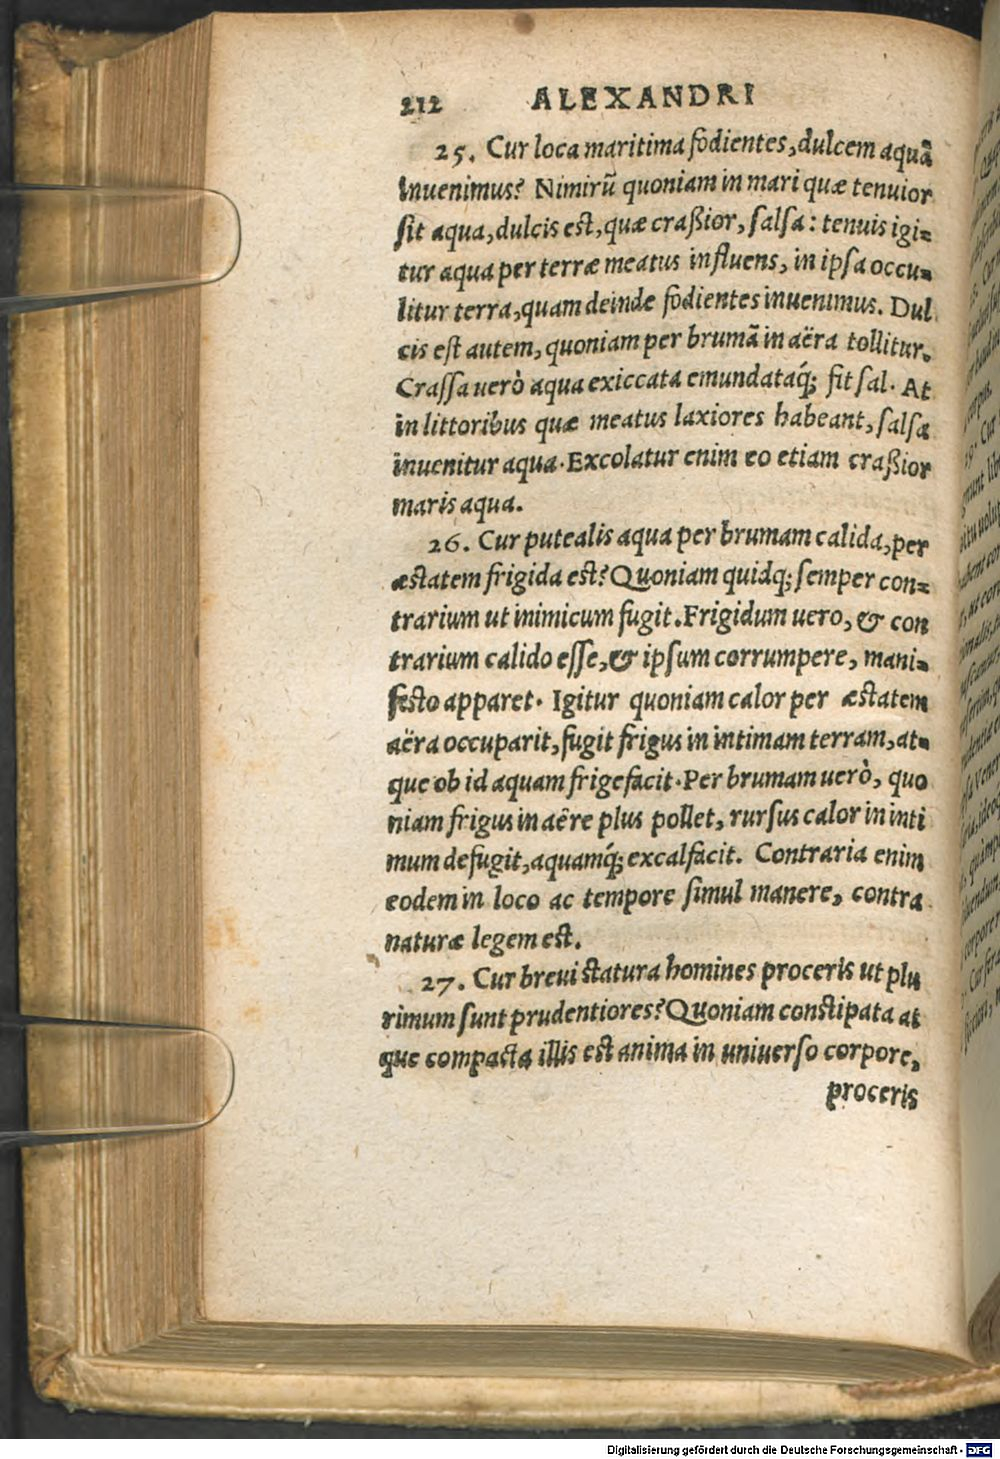 212 ALEXANDRI
25. Cur loca maritima fodientes, dulcem aquã
inuenimus? Nimirũ quoniam in mari quæ tenuior
ſit aqua, dulcis eſt, quæ craßior, ſalſa: tenuis igi=
tur aqua per terræ meatus influens, in ipſa occu=
litur terra, quam deinde fodientes inuenimus. Dul
cis eſt autem, quoniam per brumã in aëra tollitur.
Craſſa uerò aqua exiccata emundataq́; fit ſal. At
in littoribus quæ meatus laxiores habeant, ſalſa
inuenitur aqua. Excolatur enim eo etiam craßior
maris aqua.
26. Cur putealis aqua per brumam calida, per
æſtatem frigida eſt? Quoniam quidq; ſemper con=
trarium ut inimicum fugit. Frigidum uero, & con
trarium calido eſſe, & ipſum corrumpere, mani=
feſto apparet. Igitur quoniam calor per æſtatem
aëra occuparit, fugit frigus in intimam terram, at=
que ob id aquam frigefacit. Per brumam uerò, quo
niam frigus in aëre plus pollet, rurſus calor in inti
mum defugit, aquamq́; excalfacit. Contraria enim
eodem in loco ac tempore ſimul manere, contra
naturæ legem eſt.
27. Cur breui ſtatura homines proceris ut plu
rimum ſunt prudentiores? Quoniam conſtipata at
que compacta illis eſt anima in uniuerſo corpore,
proceris
Digitalisierung gefördert durch die Deutsche Forschungsgemeinschaft - DFG